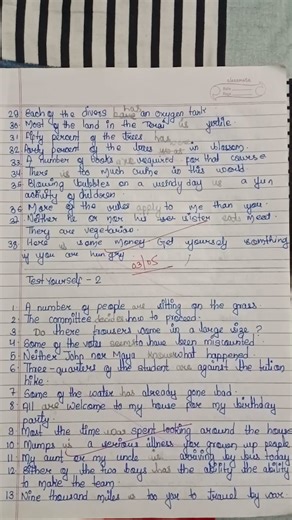 29 Each of the divers has an oxygen tank
30 Most of the land in the Terai is fertile.
31 Fifty percent of the trees has
32 Forty percent of the trees in blossom.
33 A number of books are required for that course
34 There is too much crime is this world
35 Blowing bubbles on a windy day is a fun
activity of children.
36 More of the rules apply to me than you.
37 Neither he or nor his sister eats meat.
They are vegetarian.
38 Here is some money. Get yourself something
if you are hungry
03/05
Test yourself - 2
1. A number of people are sitting on the grass
2 The committee decides how to proceed.
3 Do these trousers come in a large size ?
4 Some of the votes have been miscounted
5 Neither John nor Maya knows what happened.
6 Three-quarters of the student are against the tuition
hike.
7 Some of the water has already gone bad.
8 All are welcome to my house for my birthday
party.
9 Most the time was spent looking around the house
10 Mumps is a serious illness for grown up people
11 My aunt or my uncle is arriving by bus today
12 Either of the two boys has the ability the ability
to make the team.
13 Nine thousand miles is too you to travel by car.